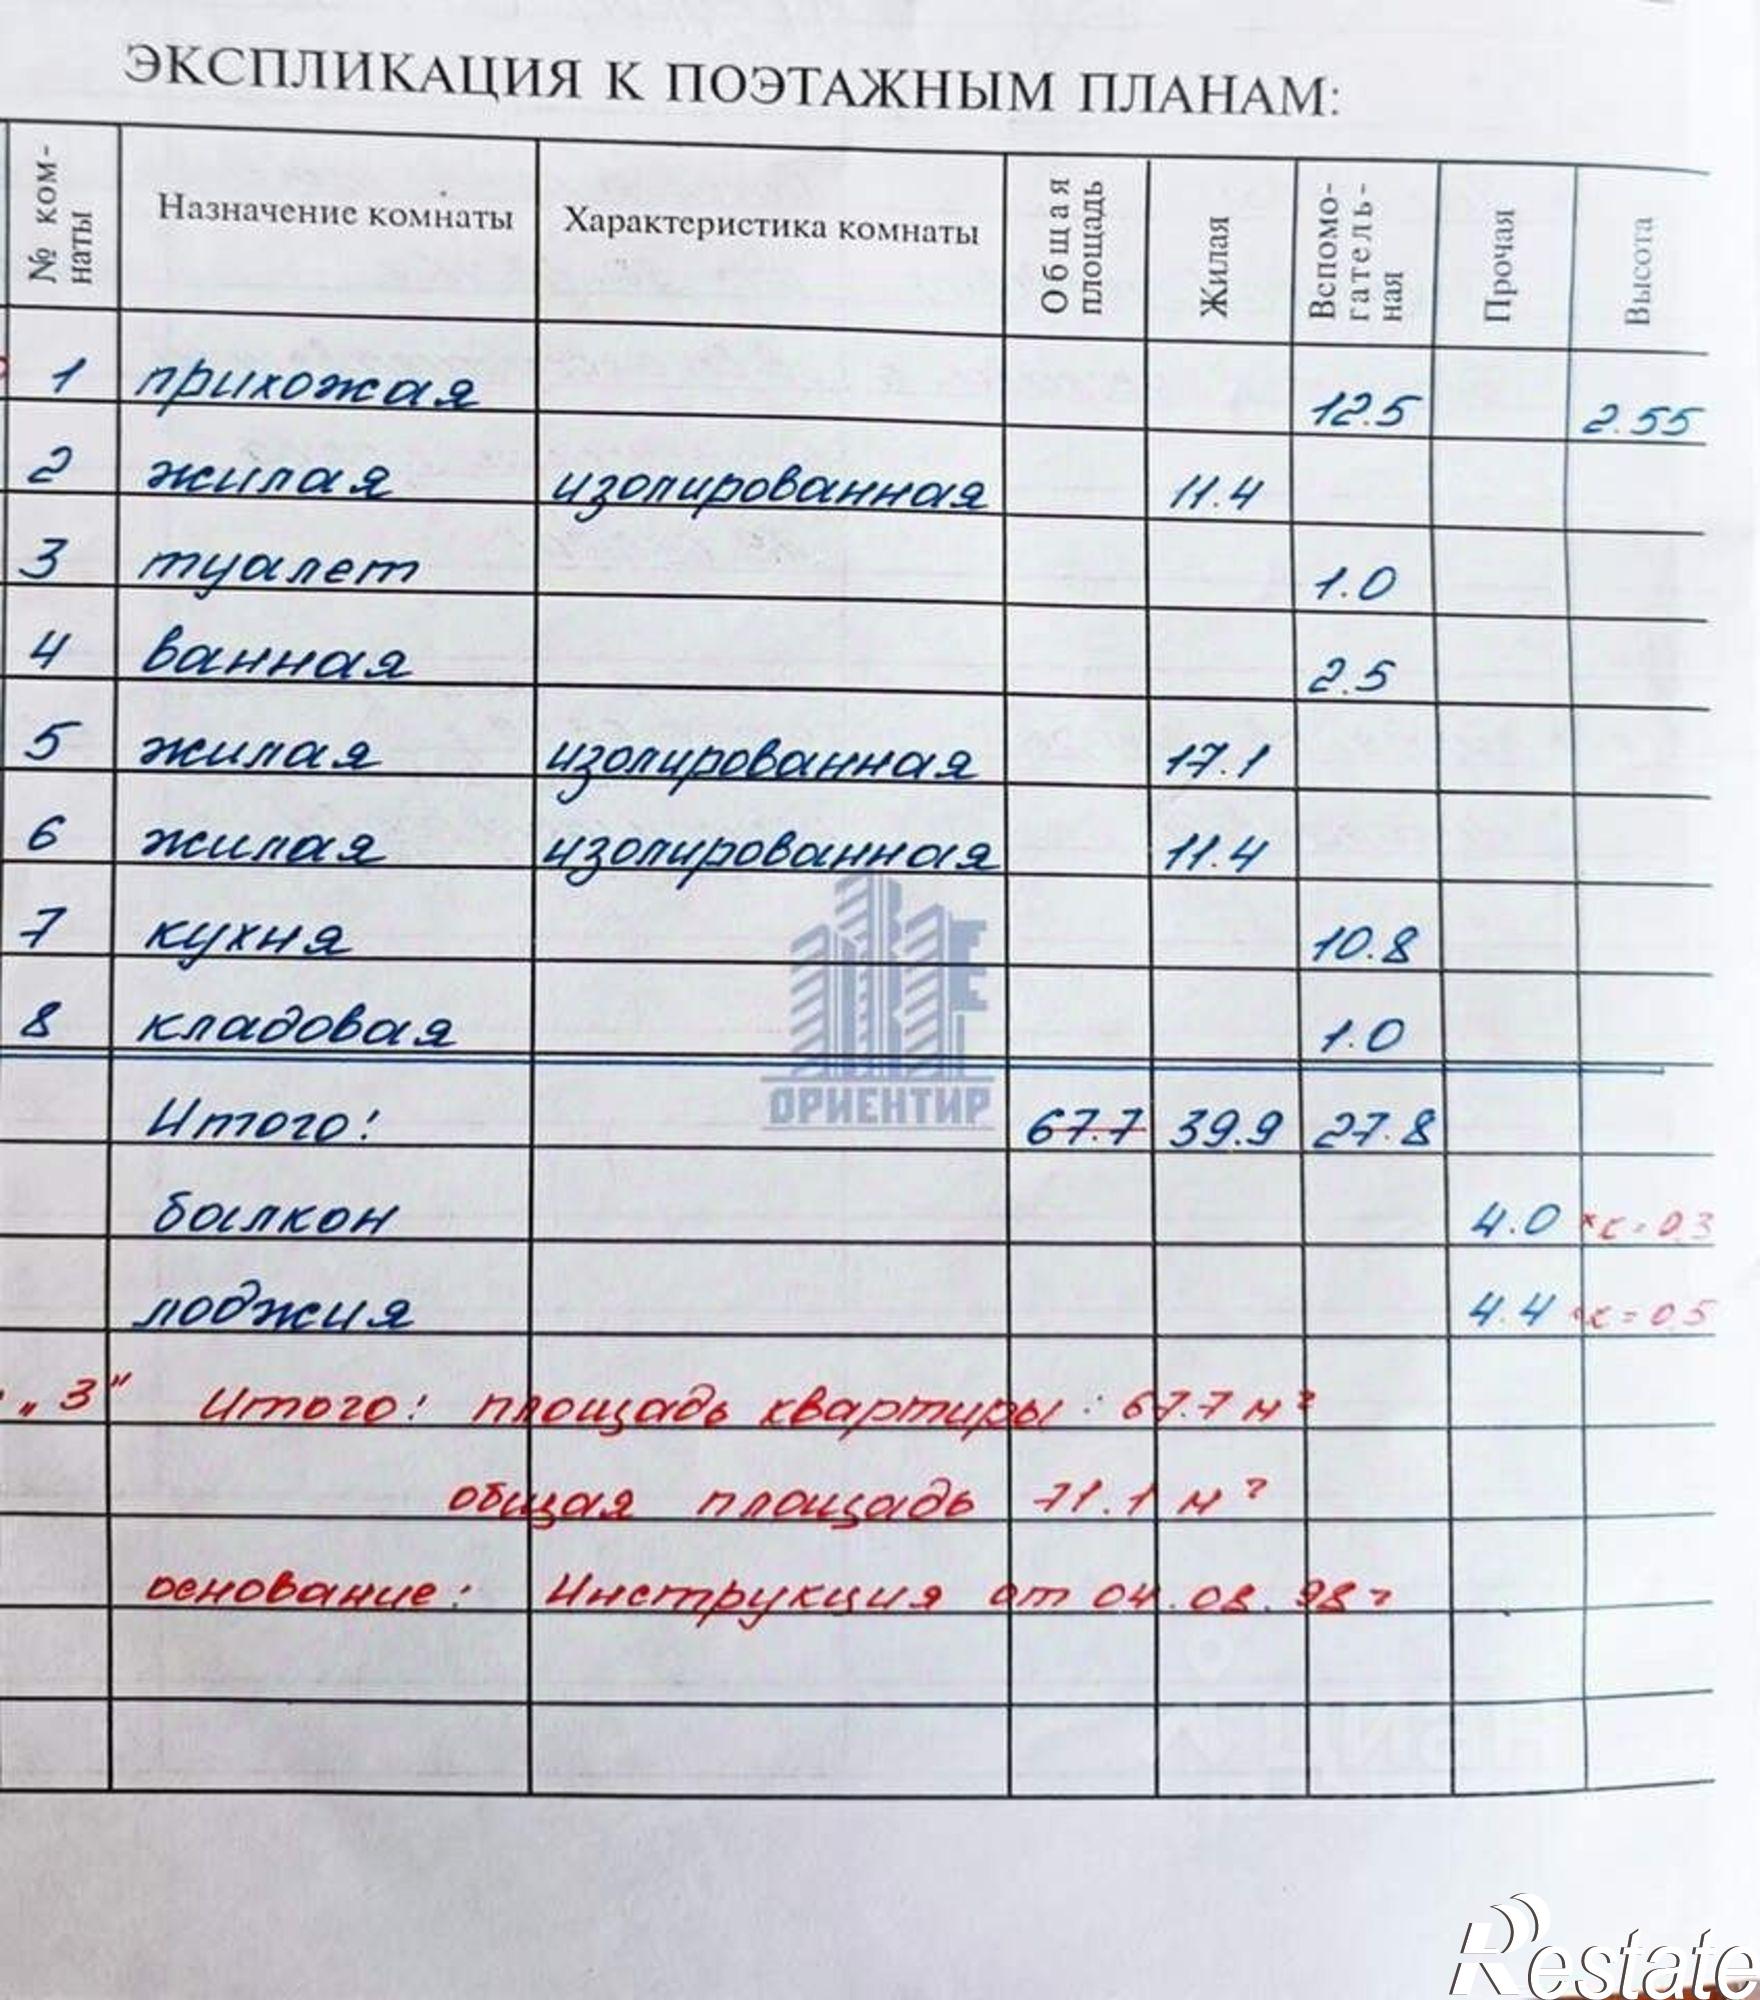 ЭКСПЛИКАЦИЯ К ПОЭТАЖНЫМ ПЛАНАМ:
№ ком-наты Назначение комнаты Характеристика комнаты Общая площадь Жилая Вспомо-гатель-ная Прочая Высота
1 прихожая 12.5 2.55
2 жилая изолированная 11.4
3 туалет 1.0
4 ванная 2.5
5 жилая изолированная 17.1
6 жилая изолированная 11.4
7 кухня 10.8
8 кладовая 1.0
ОРИЕНТИР
Итого: 67.7 39.9 27.8
балкон 4.0 к=0.3
лоджия 4.4 к=0.5
„3" Итого: площадь квартиры: 67.7 м²
общая площадь 71.1 м²
основание: Инструкция от 04.08.98г
Restate